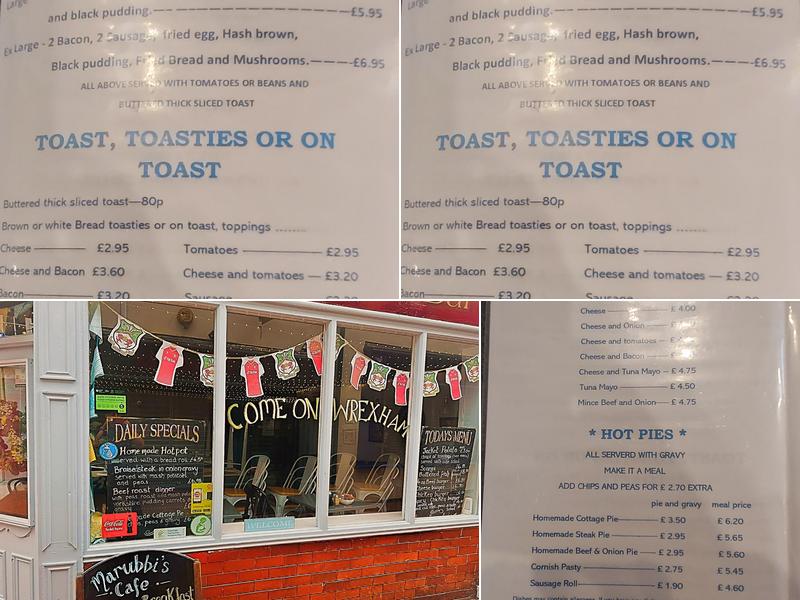 Large
and black pudding.————£5.95
Ex Large - 2 Bacon, 2 Sausage, fried egg, Hash brown,
Black pudding, Fried Bread and Mushrooms.———-£6.95
ALL ABOVE SERVED WITH TOMATOES OR BEANS AND
BUTTERED THICK SLICED TOAST
TOAST, TOASTIES OR ON
TOAST
Buttered thick sliced toast—80p
Brown or white Bread toasties or on toast, toppings .......
Cheese ———— £2.95 Tomatoes ———— £2.95
Cheese and Bacon £3.60 Cheese and tomatoes — £3.20
Bacon £3.20 Sausage
Large
and black pudding.————£5.95
Ex Large - 2 Bacon, 2 Sausage, fried egg, Hash brown,
Black pudding, Fried Bread and Mushrooms.———-£6.95
ALL ABOVE SERVED WITH TOMATOES OR BEANS AND
BUTTERED THICK SLICED TOAST
TOAST, TOASTIES OR ON
TOAST
Buttered thick sliced toast—80p
Brown or white Bread toasties or on toast, toppings .......
Cheese ———— £2.95 Tomatoes ———— £2.95
Cheese and Bacon £3.60 Cheese and tomatoes — £3.20
Bacon £3.20 Sausage
COME ON WREXHAM
DAILY SPECIALS
Home made Hotpot
served with a bread roll
Braised steak in onion gravy
served with mash potatoes
and peas
Beef roast dinner
yorkshire pudding carrots
gravy
Cottage Pie
Coca-Cola
WELCOME
TODAYS MENU
Jacket Potato
Marubbi's
Cafe
Breakfast
Cheese ——— £ 4.00
Cheese and Onion
Cheese and tomatoes
Cheese and Bacon
Cheese and Tuna Mayo – £ 4.75
Tuna Mayo ——— £ 4.50
Mince Beef and Onion— £ 4.75
* HOT PIES *
ALL SERVERD WITH GRAVY
MAKE IT A MEAL
ADD CHIPS AND PEAS FOR £ 2.70 EXTRA
pie and gravy meal price
Homemade Cottage Pie——— £ 3.50 £ 6.20
Homemade Steak Pie ——— £ 2.95 £ 5.65
Homemade Beef & Onion Pie — £ 2.95 £ 5.60
Cornish Pasty ——— £ 2.75 £ 5.45
Sausage Roll——— £ 1.90 £ 4.60
Dishes may contain allergens, if you have